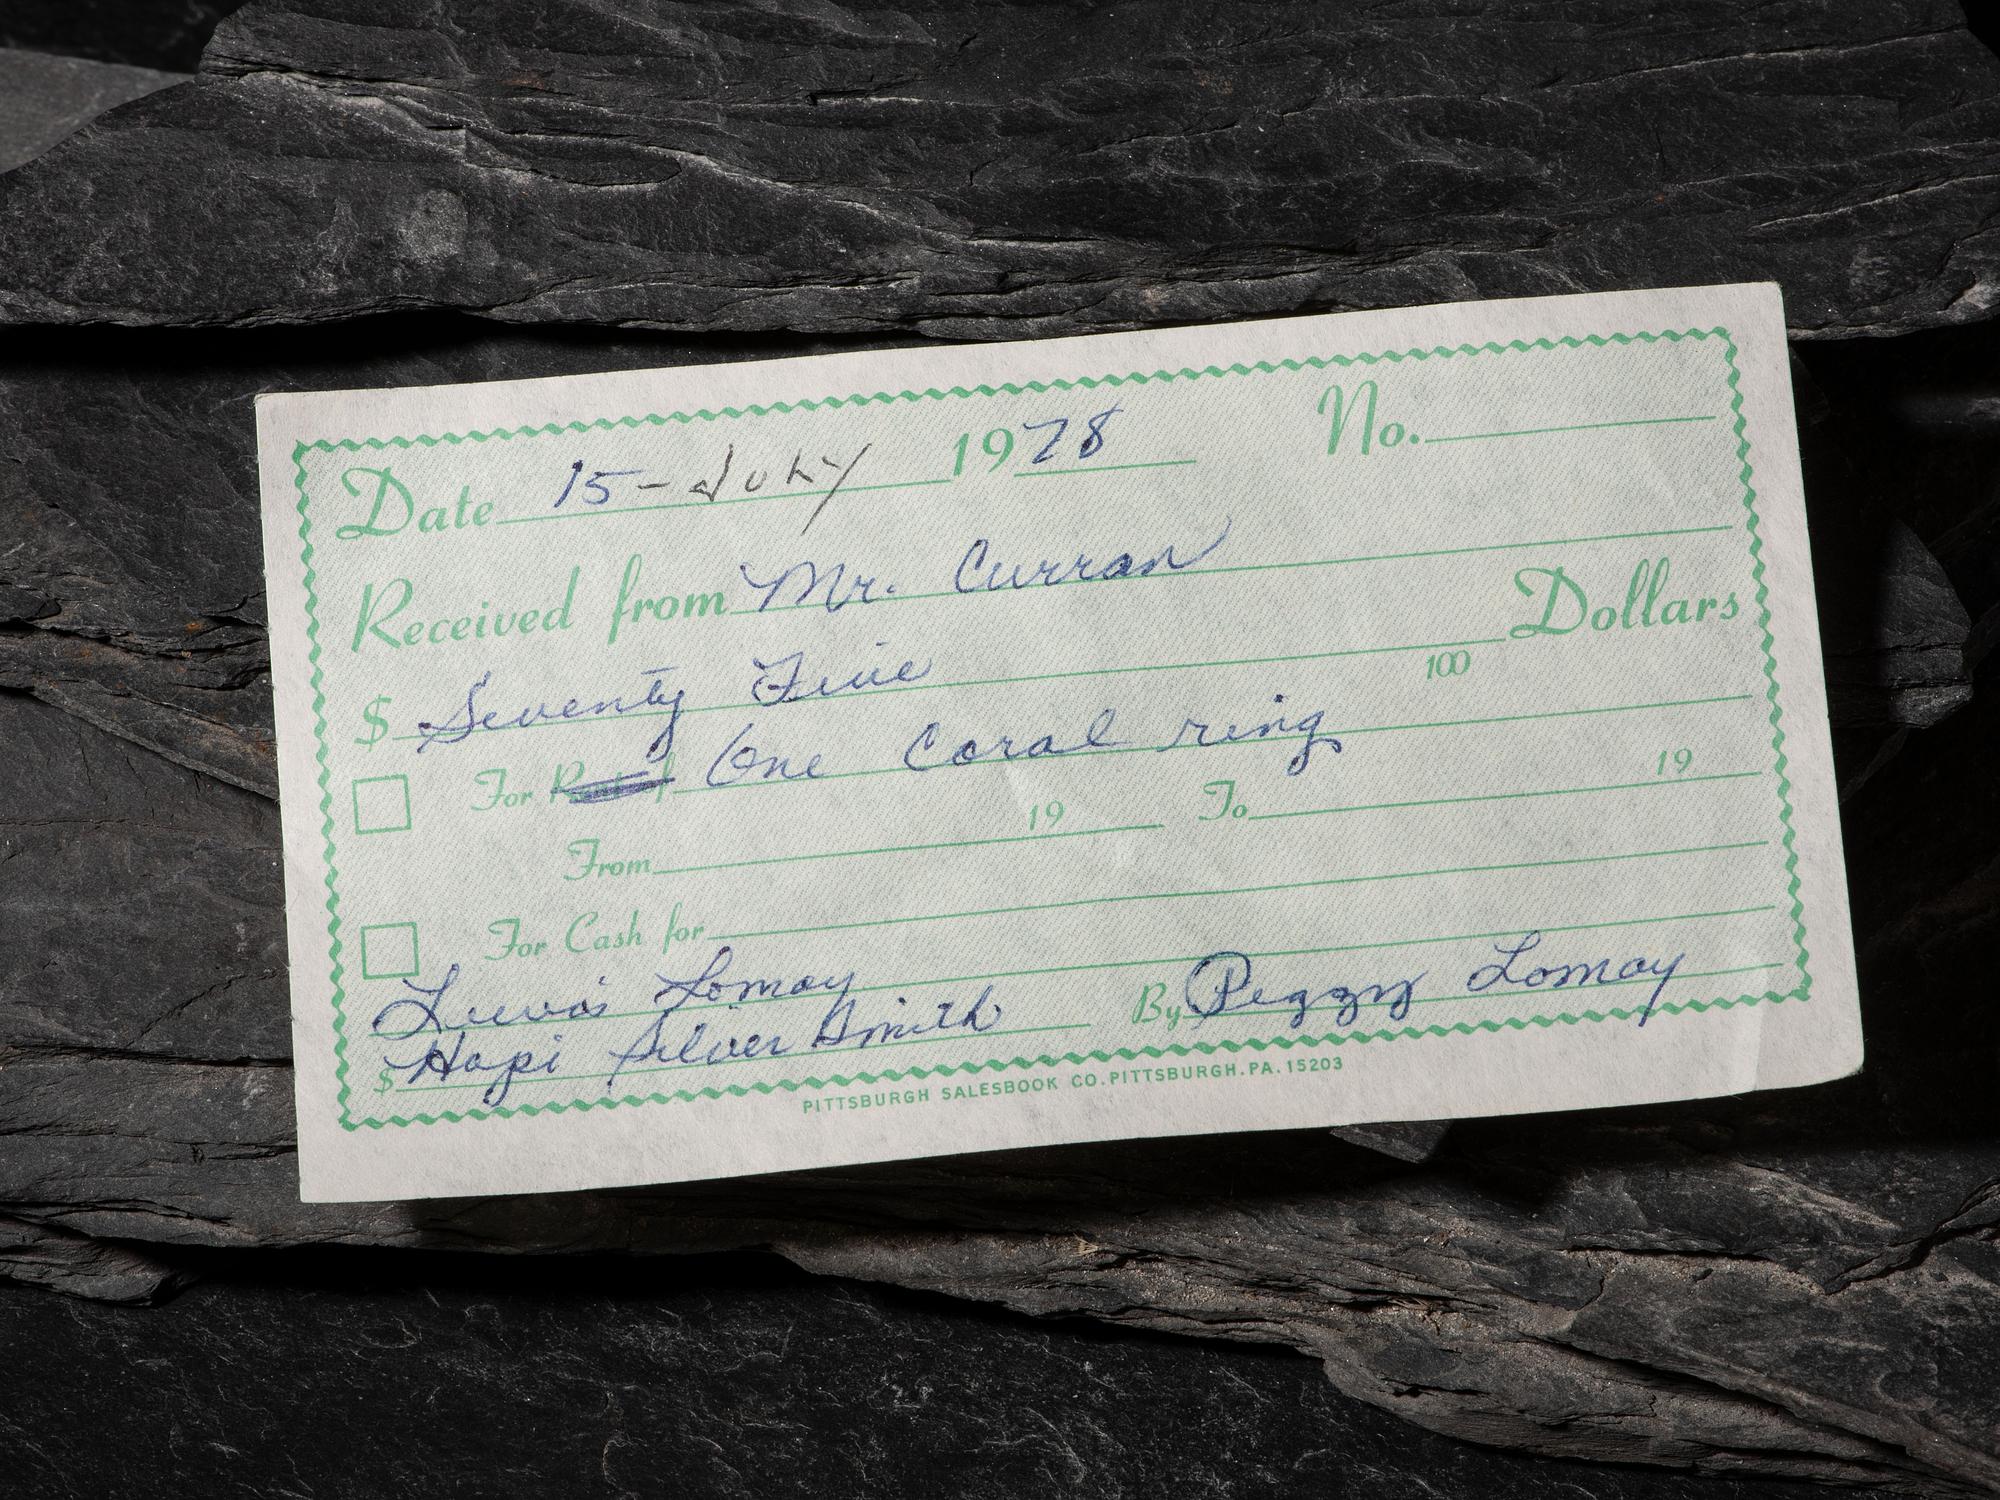 Date 15-July 1978 No.
Received from Mr. Curran
$ Seventy Five 100 Dollars
For Rent of One Coral ring
From 19 To 19
For Cash for
Lewis Lomay
Hopi Silver Smith By Peggy Lomay
$
PITTSBURGH SALESBOOK CO. PITTSBURGH. PA. 15203